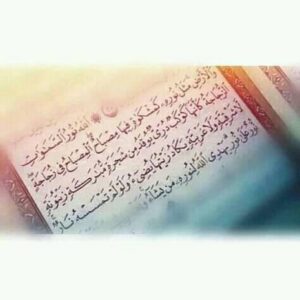 ۞ ٱللَّهُ نُورُ ٱلسَّمَٰوَٰتِ
وَٱلْأَرْضِ مَثَلُ نُورِهِۦ كَمِشْكَوٰةٍ فِيهَا مِصْبَاحٌ ٱلْمِصْبَاحُ فِى زُجَاجَةٍ
ٱلزُّجَاجَةُ كَأَنَّهَا كَوْكَبٌ دُرِّىٌّ يُوقَدُ مِن شَجَرَةٍ مُّبَٰرَكَةٍ زَيْتُونَةٍ
لَّا شَرْقِيَّةٍ وَلَا غَرْبِيَّةٍ يَكَادُ زَيْتُهَا يُضِىٓءُ وَلَوْ لَمْ تَمْسَسْهُ نَارٌ
نُّورٌ عَلَىٰ نُورٍ يَهْدِى ٱللَّهُ لِنُورِهِۦ مَن يَشَآءُ